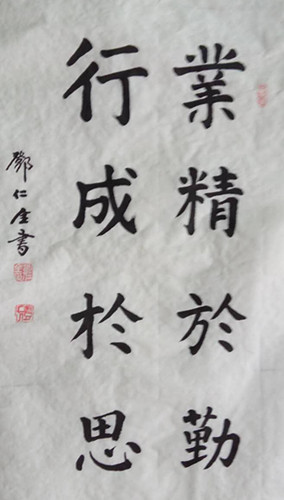 業精於勤
行成於思
鄧仁全書